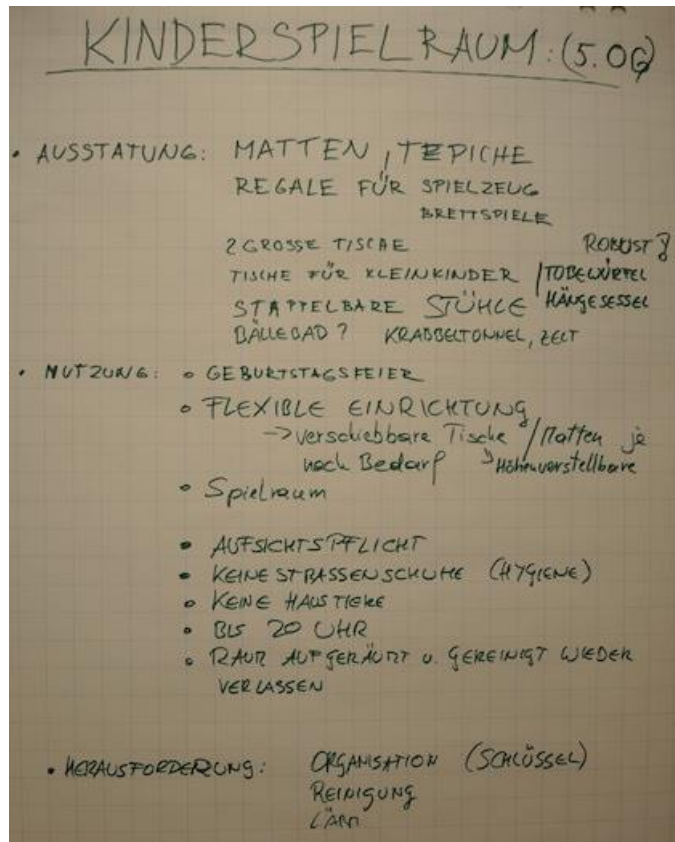 KINDERSPIELRAUM: (5.OG)
• AUSSTATUNG: MATTEN, TEPICHE
REGALE FÜR SPIELZEUG
BRETTSPIELE
2 GROSSE TISCHE ROBUST
TISCHE FÜR KLEINKINDER / TOBEWÜRFEL
STAPPELBARE STÜHLE HÄNGESESSEL
BÄLLEBAD? KRABBELTONNEL, ZELT
• NUTZUNG: • GEBURTSTAGSFEIER
• FLEXIBLE EINRICHTUNG
-> verschiebbare Tische / Matten je
nach Bedarf ↳ Höhenverstellbare
• Spielraum
• AUFSICHTSPFLICHT
• KEINE STRASSENSCHUHE (HYGIENE)
• KEINE HAUSTIERE
• BIS 20 UHR
• RAUM AUFGERÄUMT u. GEREINIGT WIEDER
VERLASSEN
• HERAUSFORDERUNG: ORGANISATION (SCHLÜSSEL)
REINIGUNG
LÄRM